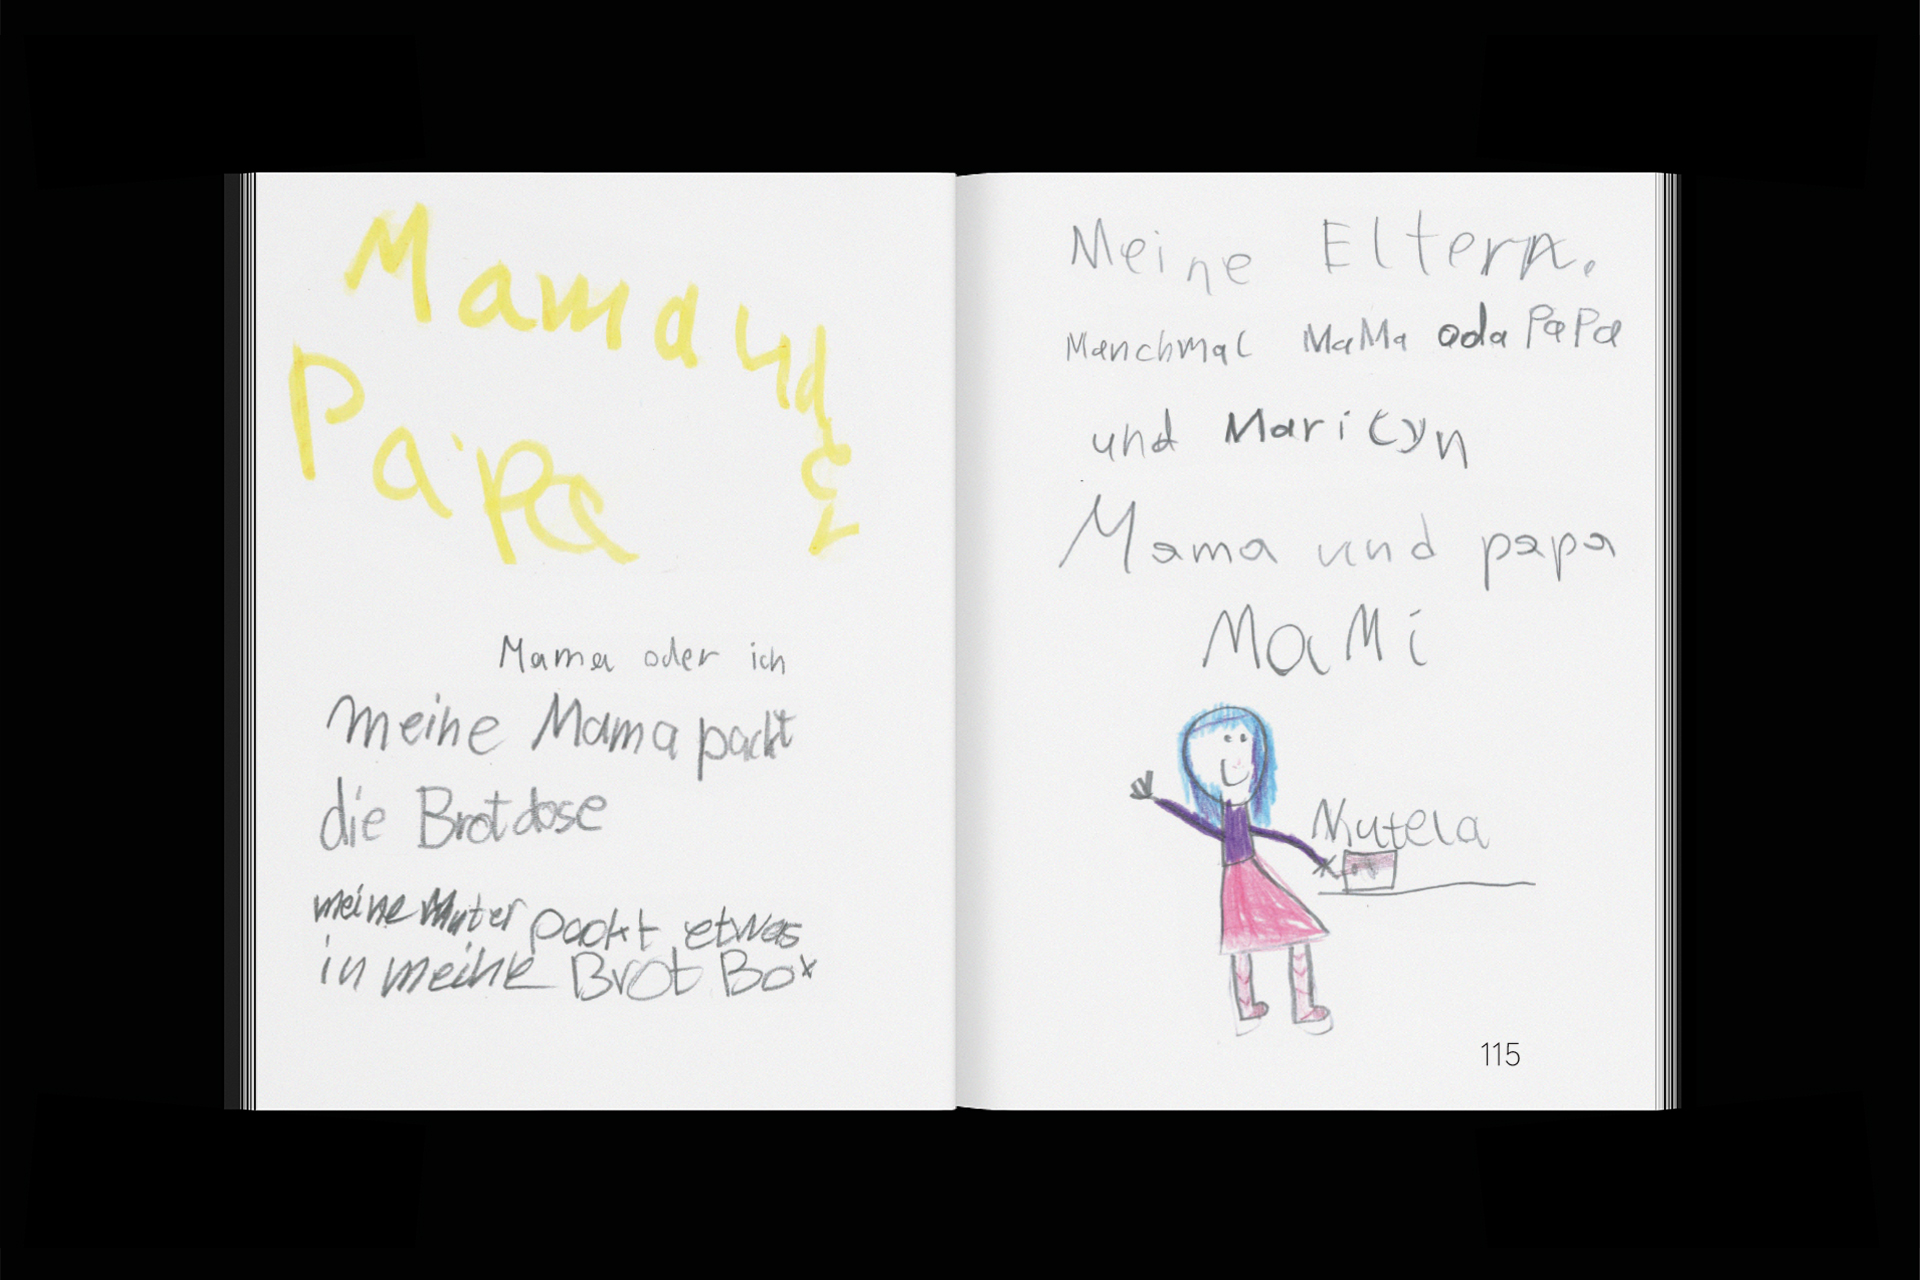 Mama und
Papa
Mama oder ich
meine Mama packt
die Brotdose
meine Muter packt etwas
in meine Brot Box
Meine Eltern.
Manchmal MaMa oda PaPa
und Marilyn
Mama und papa
MaMi
Nutela
115